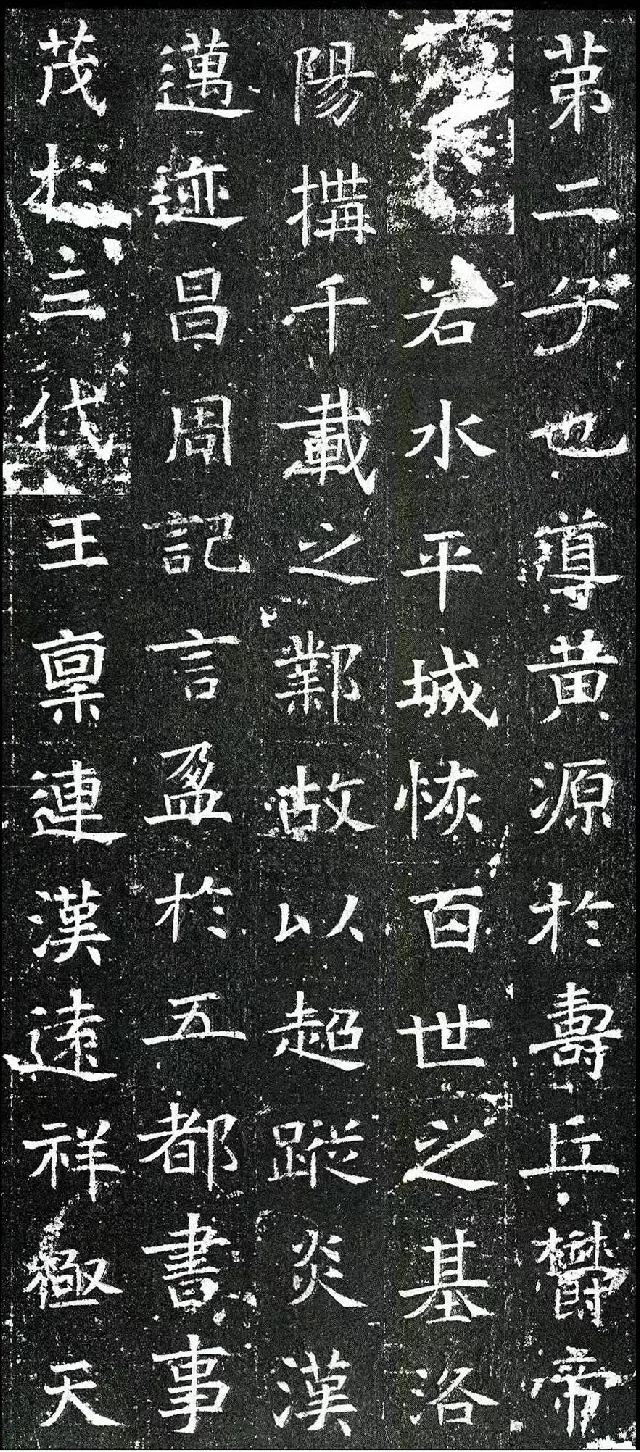 苐二子也導黄源於壽丘欝帝
若水平城恢百世之基洛
陽搆千載之鄴故以超蹤炎漢
邁迹昌周記言盈於五都書事
茂於三代王稟連漢遠祥極天